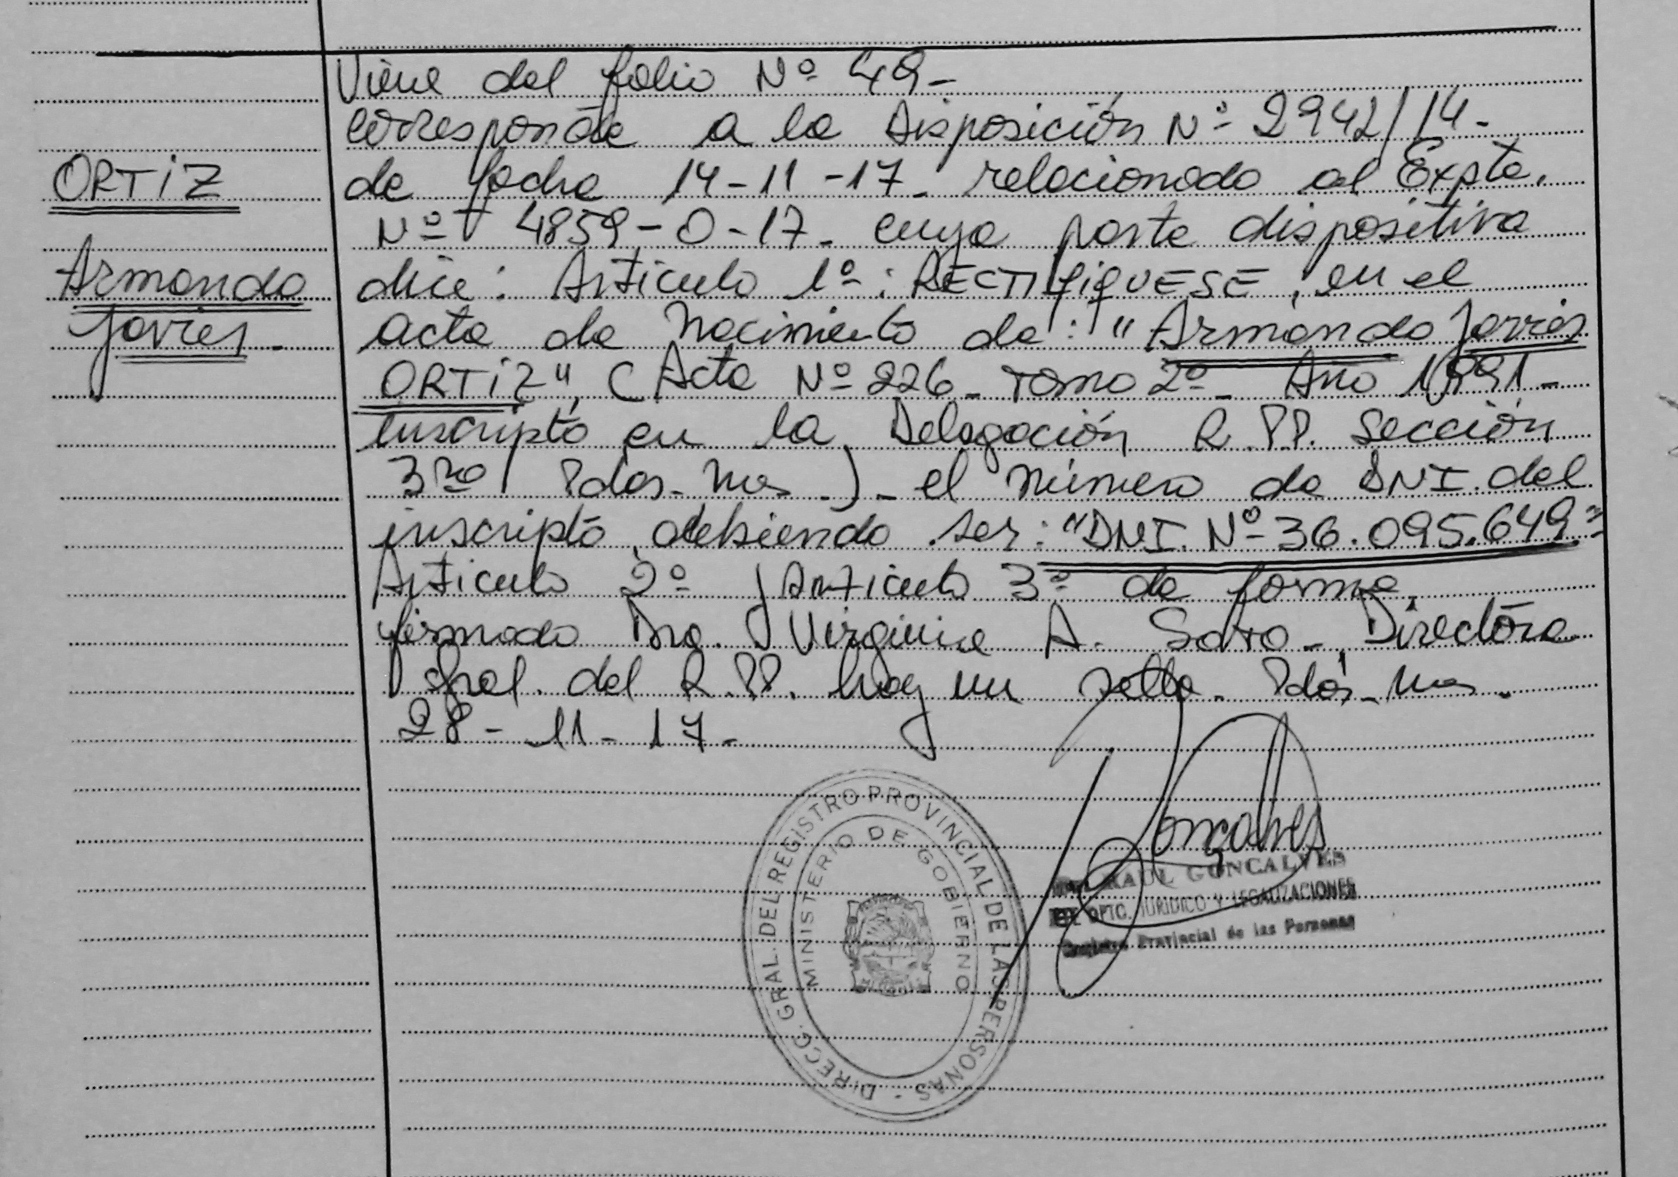 Viene del folio Nº 49-
corresponde a la Disposición Nº 2942/14-
ORTIZ
de fecha 14-11-17- relacionado al Expte.
Nº 4859-O-17- cuya parte dispositiva
Armando
dice: Artículo 1º: RECTIFIQUESE, en el
Javier.-
acta de Nacimiento de: "Armando Javier
ORTIZ", (Acta Nº 226- Tomo 2º- Año 1991-
Inscripto en la Delegación R.PP. Sección
3ra Pdas-Mnes-)- el número de DNI. del
inscripto, debiendo ser: "DNI. Nº 36.095.649"
Artículo 2º y Artículo 3º de forma,
firmado Dra. Virginia A. Soto- Directora
Gral. del R.PP. hay un sello. Pdas-Mnes.
28-11-17-
DIRECC. GRAL. DEL REGISTRO PROVINCIAL DE LAS PERSONAS -
MINISTERIO DE GOBIERNO
Gonçalves
RAUL GONCALVES
DPTO. JURIDICO Y LEGALIZACIONES
Registro Provincial de las Personas